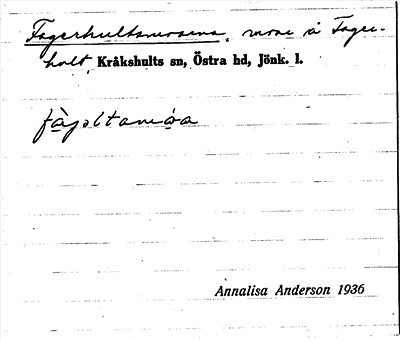 Fagerhultsmossa, mosse å Fager-
hult, Kråkshults sn, Östra hd, Jönk. l.
Annalisa Anderson 1936